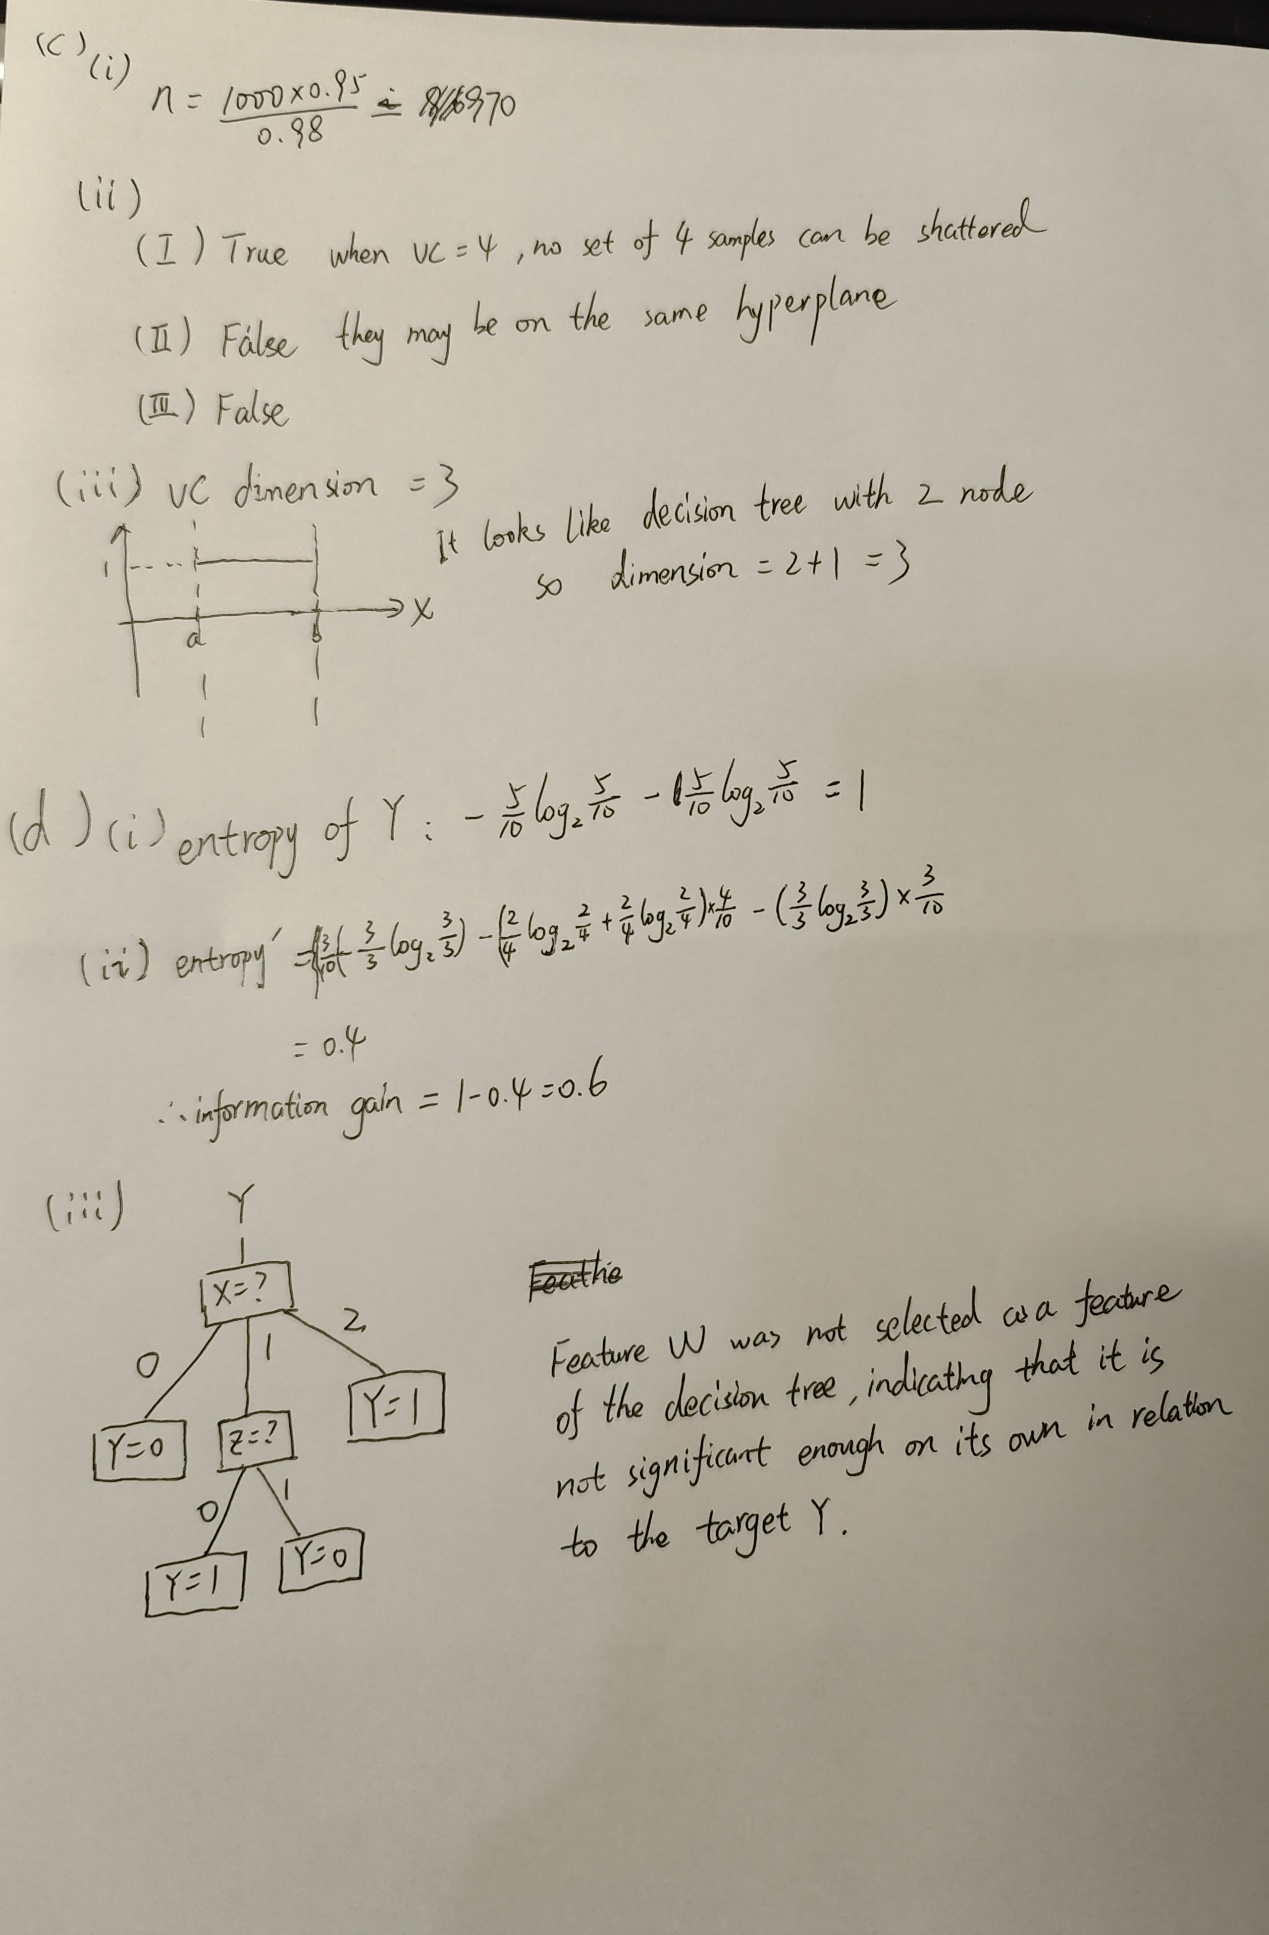 (c) (i)
n = 1000×0.95 / 0.98 ≐ 970
(ii)
(I) True when VC = 4, no set of 4 samples can be shattered
(II) False they may be on the same hyperplane
(III) False
(iii) VC dimension = 3
It looks like decision tree with 2 node
so dimension = 2+1 = 3
1
a b X
(d) (i) entropy of Y: - 5/10 log₂ 5/10 - 5/10 log₂ 5/10 = 1
(ii) entropy' = 3/10 (- 3/3 log₂ 3/3) - (2/4 log₂ 2/4 + 2/4 log₂ 2/4) × 4/10 - (3/3 log₂ 3/3) × 3/10
= 0.4
∴ information gain = 1-0.4=0.6
(iii) Y
X=?
0 1 2
Y=0 Z=? Y=1
0 1
Y=1 Y=0
Feature W was not selected as a feature
of the decision tree, indicating that it is
not significant enough on its own in relation
to the target Y.